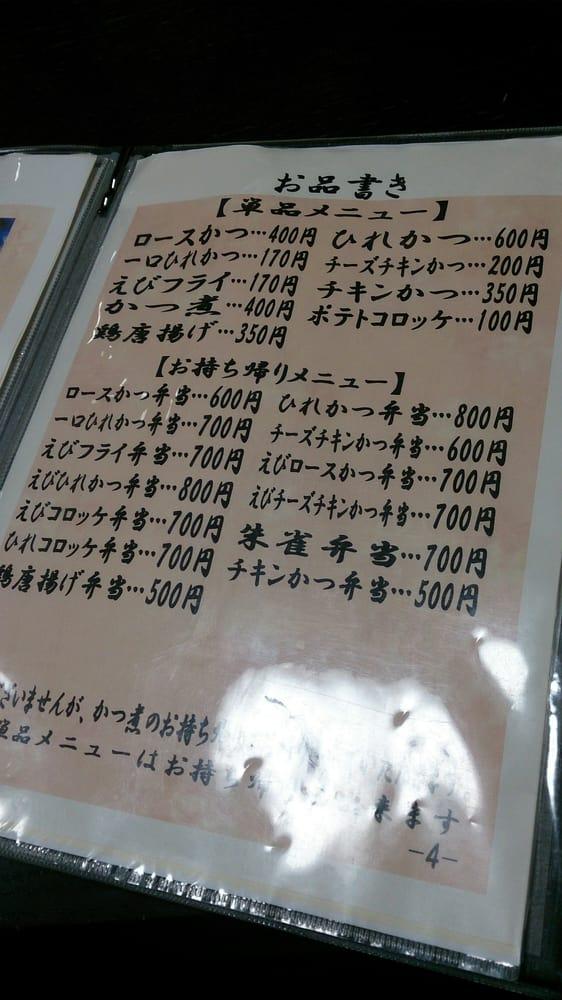 お品書き
【単品メニュー】
ロースかつ…400円 ひれかつ…600円
一口ひれかつ…170円 チーズチキンかつ…200円
えびフライ…170円 チキンかつ…350円
かつ煮…400円 ポテトコロッケ…100円
鶏唐揚げ…350円
【お持ち帰りメニュー】
ロースかつ弁当…600円 ひれかつ弁当…800円
一口ひれかつ弁当…700円 チーズチキンかつ弁当…600円
えびフライ弁当…700円 えびロースかつ弁当…700円
えびひれかつ弁当…800円 えびチーズチキンかつ弁当…700円
えびコロッケ弁当…700円 朱雀弁当…700円
ひれコロッケ弁当…700円 チキンかつ弁当…500円
鶏唐揚げ弁当…500円
ざいませんが、かつ煮のお持ち
単品メニューはお持ち 来ます
-4-